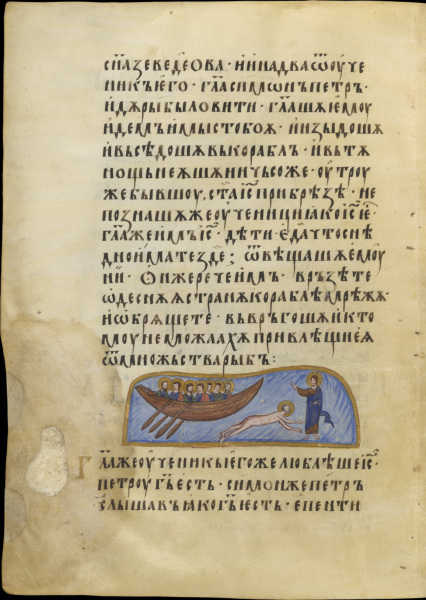 сн҃а зеведеѡва · и ина два ѿ ѹче
никъ его · гл҃а симѡнъ петръ ·
идѫ рыбы ловити · гл҃ашѫ емоу
идемъ и мы с тобоѫ · и изыдошѫ
и въсѣдошѫ въ корабль · и въ тѫ
нощь не ѩшѫ ничьсоже · оутроу
же бывшоу · ста іс҃ при брѣзѣ · не
познашѫ же оученици ꙗко іс҃ е҃
гл҃а же имъ іс҃ · дѣти · еда что снѣ
дно имате зде ; ѿвѣщашѫ емоу
ни · ѡн же рече имъ · връзѣте
ѡ деснѫѫ странѫ кораблѣ мрѣжѫ ·
и ѡбрѧщете · въвръгошѫ и к то
моу не можаахѫ привлѣщи еѫ
ѿ множьства рыбъ :
Гл҃а же оученикъ егоже люблѣше іс҃ ·
петроу г҃ь есть · симон же петръ
слышавъ ꙗко г҃ь есть · епенти